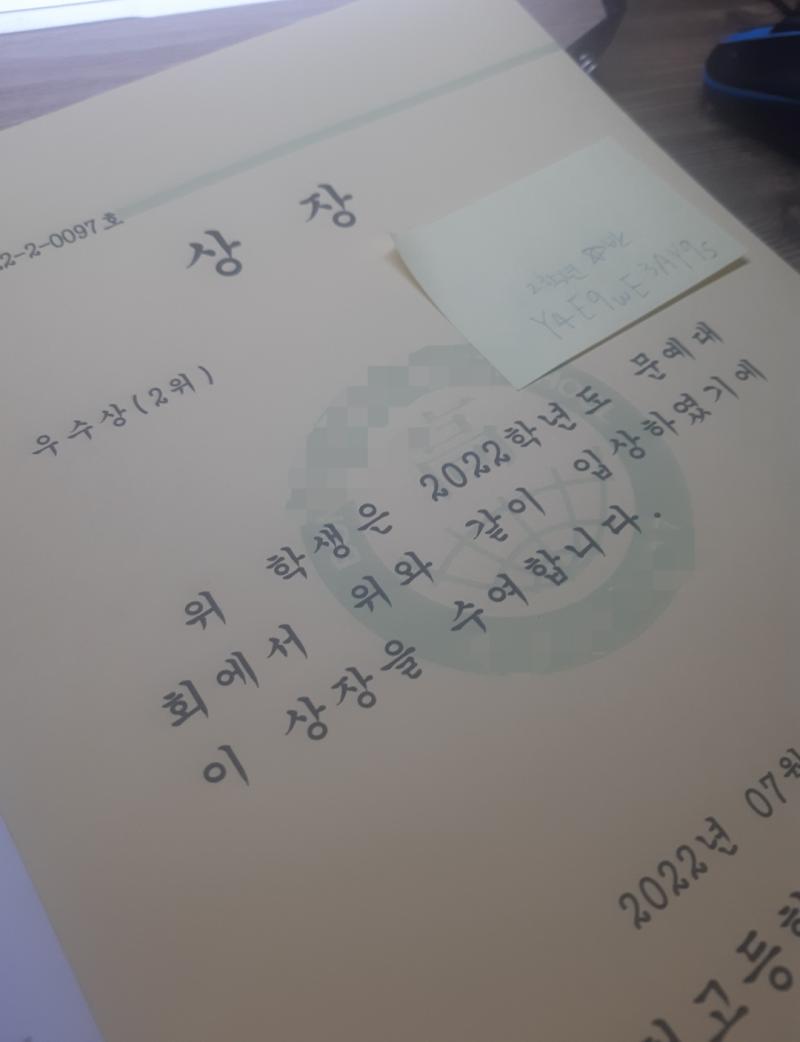 2-2-0097호
상 장
Y4E9wE3AY9s
우수상(2위)
위 학생은 2022학년도 문예대
회에서 위와 같이 입상하였기에
이 상장을 수여합니다.
2022년 07월
고등학